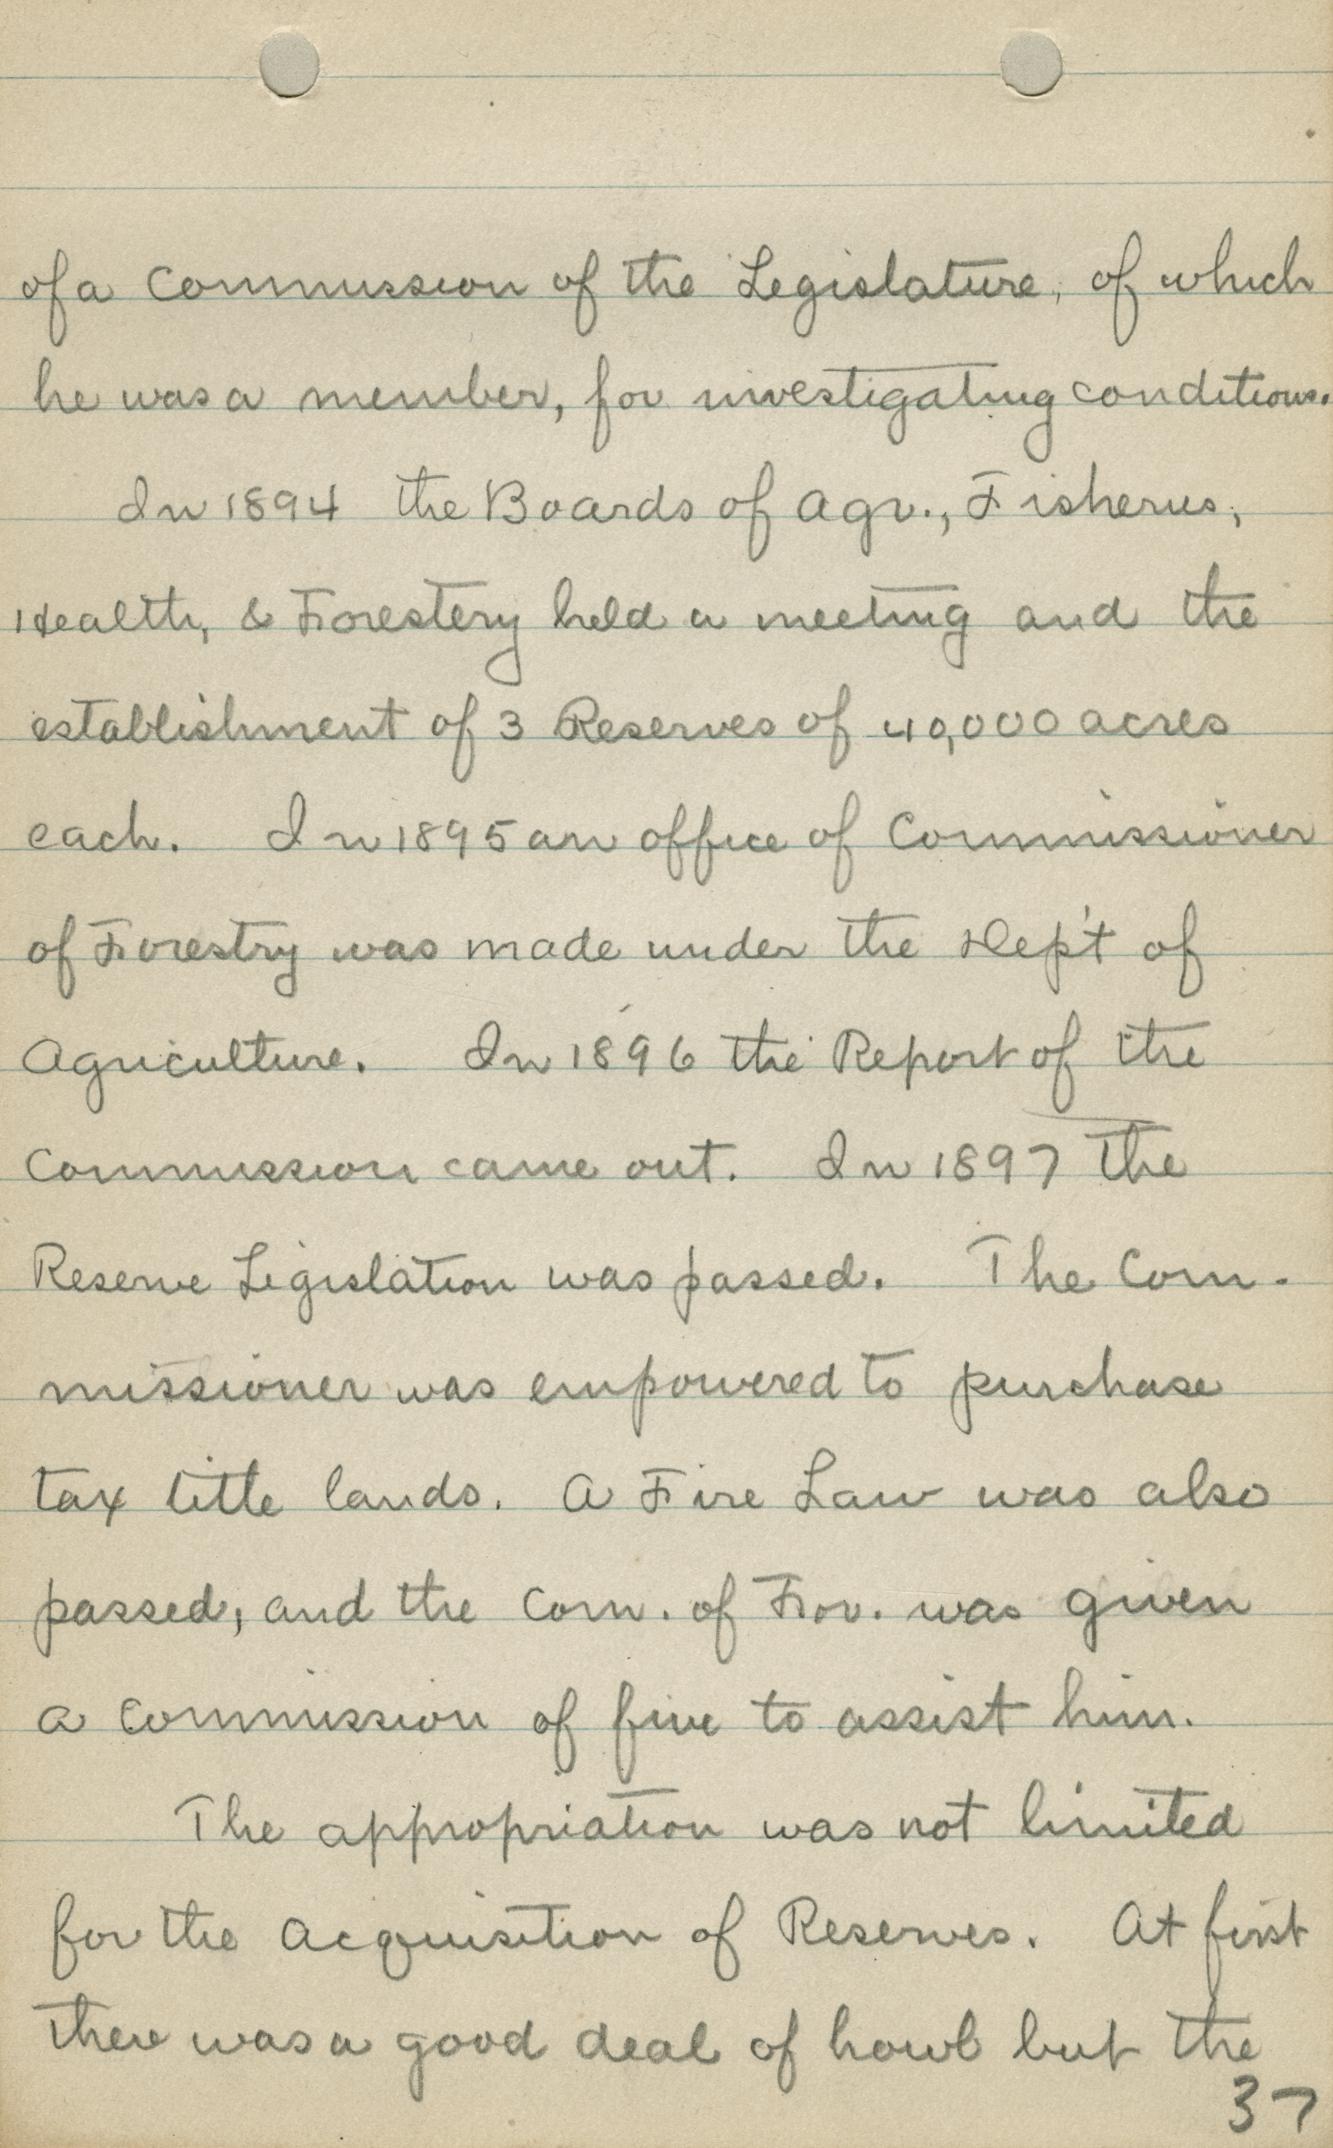 of a Commission of the Legislature, of which
he was a member, for investigating conditions.
In 1894 the Boards of Agr., Fisheries,
Health, & Forestery held a meeting and the
establishment of 3 Reserves of 40,000 acres
each. In 1895 an office of Commissioner
of Forestry was made under the Dep't of
Agriculture. In 1896 the Report of the
Commission came out. In 1897 the
Reserve Legislation was passed. The Com-
missioner was empowered to purchase
tax title lands. A Fire Law was also
passed, and the Com. of For. was given
a Commission of five to assist him.
The appropriation was not limited
for the Acquisition of Reserves. At first
there was a good deal of howl but the
37